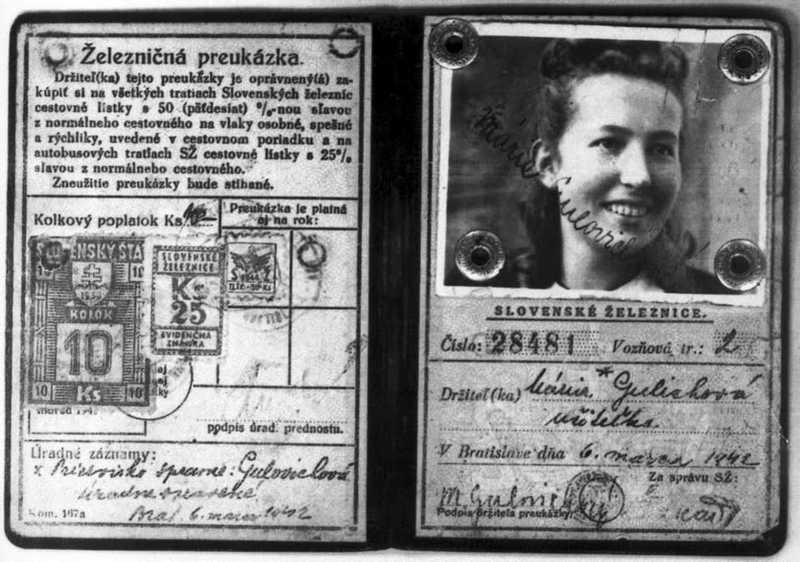 Železničná preukázka.
Držiteľ(ka) tejto preukážky je oprávnený(á) za-
kúpiť si na všetkých tratiach Slovenských železníc
cestovné lístky s 50 (päťdesiat) %-nou sľavou
z normálneho cestovného na vlaky osobné, spešné
a rýchliky, uvedené v cestovnom poriadku a na
autobusových tratiach SŽ cestovné lístky s 25%
slavou z normálneho cestovného.
Zneužitie preukázky bude stíhané.
Kolkový poplatok Ks 10
Preukázka je platná
aj na rok:
SLOVENSKÝ ŠTÁT
10 10
1939
KOLOK
10
10 Ks 10
SLOVENSKÉ
ŽELEZNICE
Ks
25
EVIDENČNÁ
ZNÁMKA
podpis úrad. prednostu.
Úradné záznamy:
x Priezvisko správne: Gulovichová
Úradne opravené
Brat. 6. marca 1942
Kom. 167a
Mária Gulovic
SLOVENSKÉ ŽELEZNICE.
Číslo: 28481 Vozňová tr.: 2
Držiteľ(ka) Mária * Gulichová
učiteľka
V Bratislave dňa 6. marca 1942
Za správu SŽ:
M Gulovic
Podpis držiteľa preukážky: